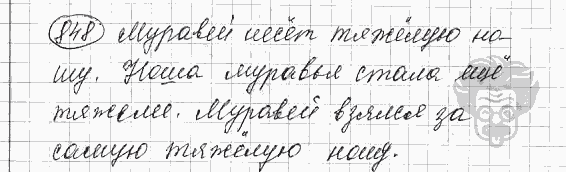 848 Муравей несёт тяжёлую но-
шу. Ноша муравья стала ещё
тяжелее. Муравей взялся за
самую тяжёлую ношу.